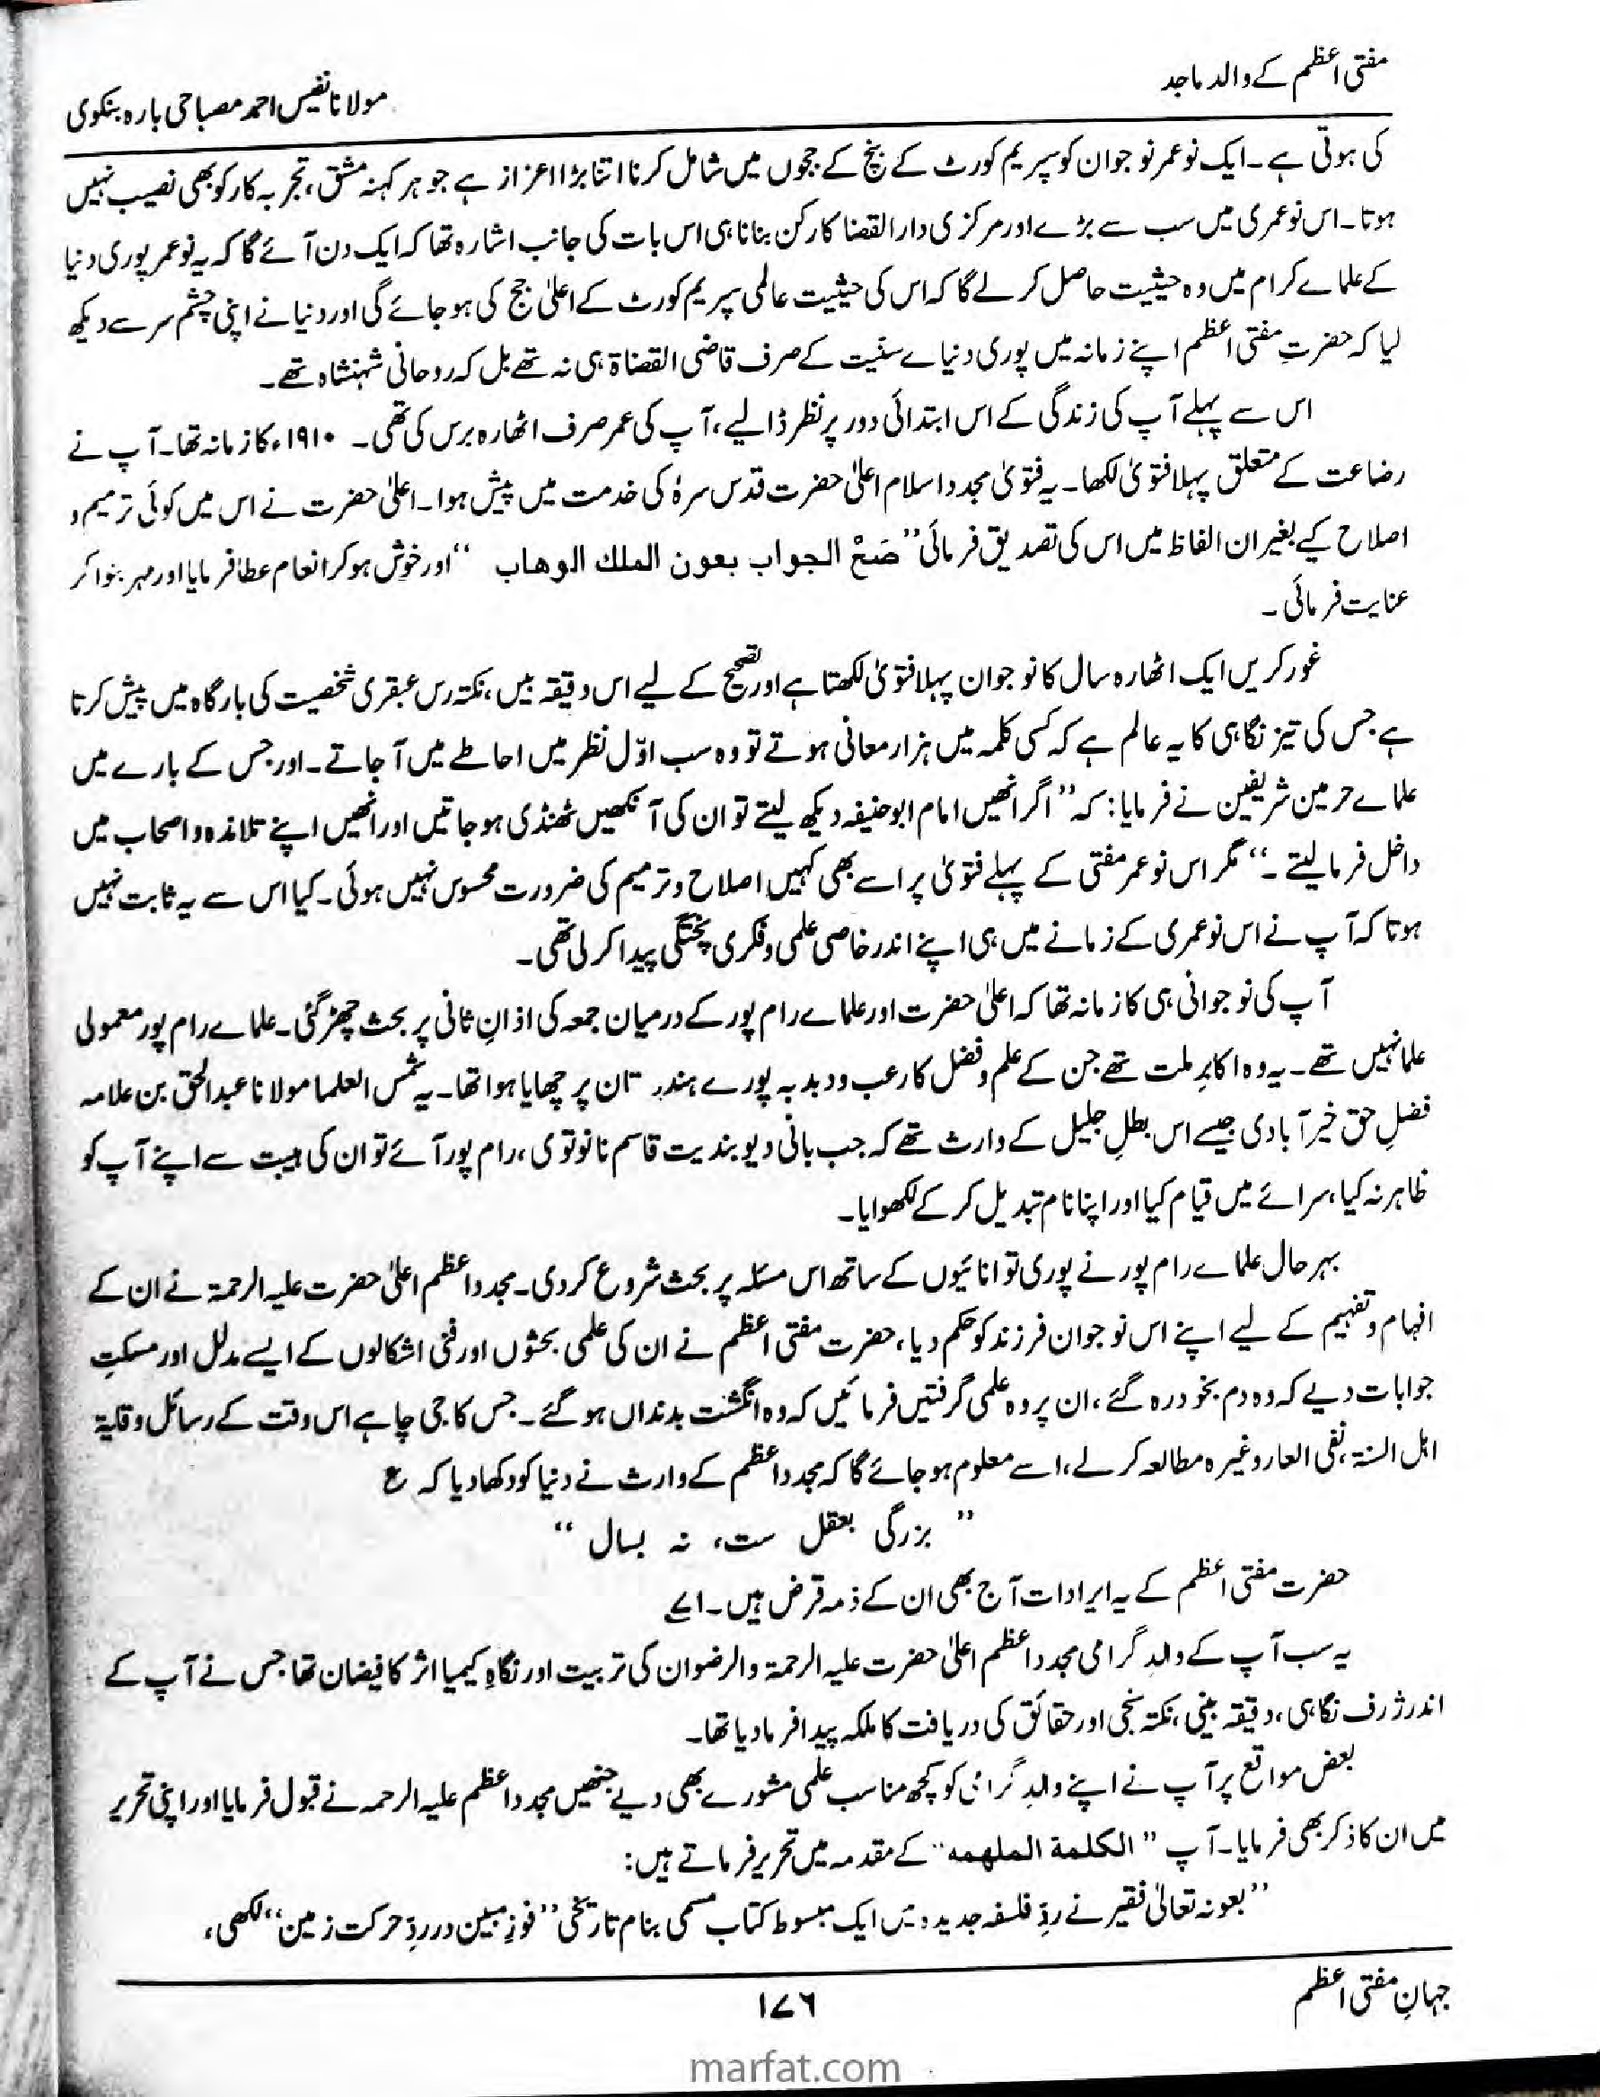 مفتی اعظم کے والد ماجد
مولانا نفیس احمد مصباحی بارہ بنکوی
کی ہوتی ہے۔ ایک نوعمر نوجوان کو سپریم کورٹ کے بنچ کے ججوں میں شامل کرنا اتنا بڑا اعزاز ہے جو ہر کہنہ مشق، تجربہ کار کو بھی نصیب نہیں
ہوتا۔ اس نوعمری میں سب سے بڑے اور مرکزی دارالقضا کا رکن بنانا ہی اس بات کی جانب اشارہ تھا کہ ایک دن آئے گا کہ یہ نوعمر پوری دنیا
کے علماے کرام میں وہ حیثیت حاصل کر لے گا کہ اس کی حیثیت عالمی سپریم کورٹ کے اعلیٰ جج کی ہو جائے گی اور دنیا نے اپنی چشم سر سے دیکھ
لیا کہ حضرتِ مفتی اعظم اپنے زمانہ میں پوری دنیاے سنّیت کے صرف قاضی القضاۃ ہی نہ تھے بل کہ روحانی شہنشاہ تھے۔
اس سے پہلے آپ کی زندگی کے اس ابتدائی دور پر نظر ڈالیے، آپ کی عمر صرف اٹھارہ برس کی تھی۔ ۱۹۱۰ء کا زمانہ تھا۔ آپ نے
رضاعت کے متعلق پہلا فتویٰ لکھا۔ یہ فتویٰ مجدد اسلام اعلیٰ حضرت قدس سرہٗ کی خدمت میں پیش ہوا۔ اعلیٰ حضرت نے اس میں کوئی ترمیم و
اصلاح کیے بغیر ان الفاظ میں اس کی تصدیق فرمائی ”صَحَّ الجواب بعون الملك الوهاب“ اور خوش ہو کر انعام عطا فرمایا اور مہر بنوا کر
عنایت فرمائی۔
غور کریں ایک اٹھارہ سال کا نوجوان پہلا فتویٰ لکھتا ہے اور تصحیح کے لیے اس دقیقہ بیں، نکتہ رس عبقری شخصیت کی بارگاہ میں پیش کرتا
ہے جس کی تیز نگاہی کا یہ عالم ہے کہ کسی کلمہ میں ہزار معانی ہوتے تو وہ سب اوّل نظر میں احاطے میں آ جاتے۔ اور جس کے بارے میں
علماے حرمین شریفین نے فرمایا: کہ ”اگر انھیں امام ابوحنیفہ دیکھ لیتے تو ان کی آنکھیں ٹھنڈی ہو جاتیں اور انھیں اپنے تلامذہ و اصحاب میں
داخل فرما لیتے۔“ مگر اس نوعمر مفتی کے پہلے فتویٰ پر اسے بھی کہیں اصلاح و ترمیم کی ضرورت محسوس نہیں ہوئی۔ کیا اس سے یہ ثابت نہیں
ہوتا کہ آپ نے اس نوعمری کے زمانے میں ہی اپنے اندر خاصی علمی و فکری پختگی پیدا کر لی تھی۔
آپ کی نوجوانی ہی کا زمانہ تھا کہ اعلیٰ حضرت اور علماے رام پور کے درمیان جمعہ کی اذانِ ثانی پر بحث چھڑ گئی۔ علماے رام پور معمولی
علما نہیں تھے۔ یہ وہ اکابرِ ملت تھے جن کے علم و فضل کا رعب و دبدبہ پورے ہندوستان پر چھایا ہوا تھا۔ یہ شمس العلما مولانا عبدالحق بن علامہ
فضلِ حق خیرآبادی جیسے اس بطلِ جلیل کے وارث تھے کہ جب بانی دیوبندیت قاسم نانوتوی، رام پور آئے تو ان کی ہیبت سے اپنے آپ کو
ظاہر نہ کیا، سرائے میں قیام کیا اور اپنا نام تبدیل کر کے لکھوایا۔
بہرحال علماے رام پور نے پوری توانائیوں کے ساتھ اس مسئلہ پر بحث شروع کر دی۔ مجدد اعظم اعلیٰ حضرت علیہ الرحمۃ نے ان کے
افہام و تفہیم کے لیے اپنے اس نوجوان فرزند کو حکم دیا، حضرت مفتی اعظم نے ان کی علمی بحثوں اور فنّی اشکالوں کے ایسے مدلل اور مسکتِ
جوابات دیے کہ وہ دم بخود رہ گئے، ان پر وہ علمی گرفتیں فرمائیں کہ وہ انگشت بدنداں ہو گئے۔ جس کا جی چاہے اس وقت کے رسائل وقایۃ
اہل السنۃ، نفی العار وغیرہ مطالعہ کر لے، اسے معلوم ہو جائے گا کہ مجدد اعظم کے وارث نے دنیا کو دکھا دیا کہ ع
”بزرگی بعقل ست، نہ بسال“
حضرت مفتی اعظم کے یہ ایرادات آج بھی ان کے ذمہ قرض ہیں۔ اے
یہ سب آپ کے والدِ گرامی مجدد اعظم اعلیٰ حضرت علیہ الرحمۃ والرضوان کی تربیت اور نگاہِ کیمیا اثر کا فیضان تھا جس نے آپ کے
اندر ژرف نگاہی، دقیقہ بینی، نکتہ سنجی اور حقائق کی دریافت کا ملکہ پیدا فرما دیا تھا۔
بعض مواقع پر آپ نے اپنے والدِ گرامی کو کچھ مناسب علمی مشورے بھی دیے جنھیں مجدد اعظم علیہ الرحمہ نے قبول فرمایا اور اپنی تحریر
میں ان کا ذکر بھی فرمایا۔ آپ ”الكلمة الملهمه“ کے مقدمہ میں تحریر فرماتے ہیں:
”بعونہ تعالیٰ فقیر نے ردِّ فلسفہ جدیدہ میں ایک مبسوط کتاب مسمی بنام تاریخی ”فوزِ مبین در ردِّ حرکت زمین“ لکھی،
جہانِ مفتی اعظم
۱۷۶
marfat.com